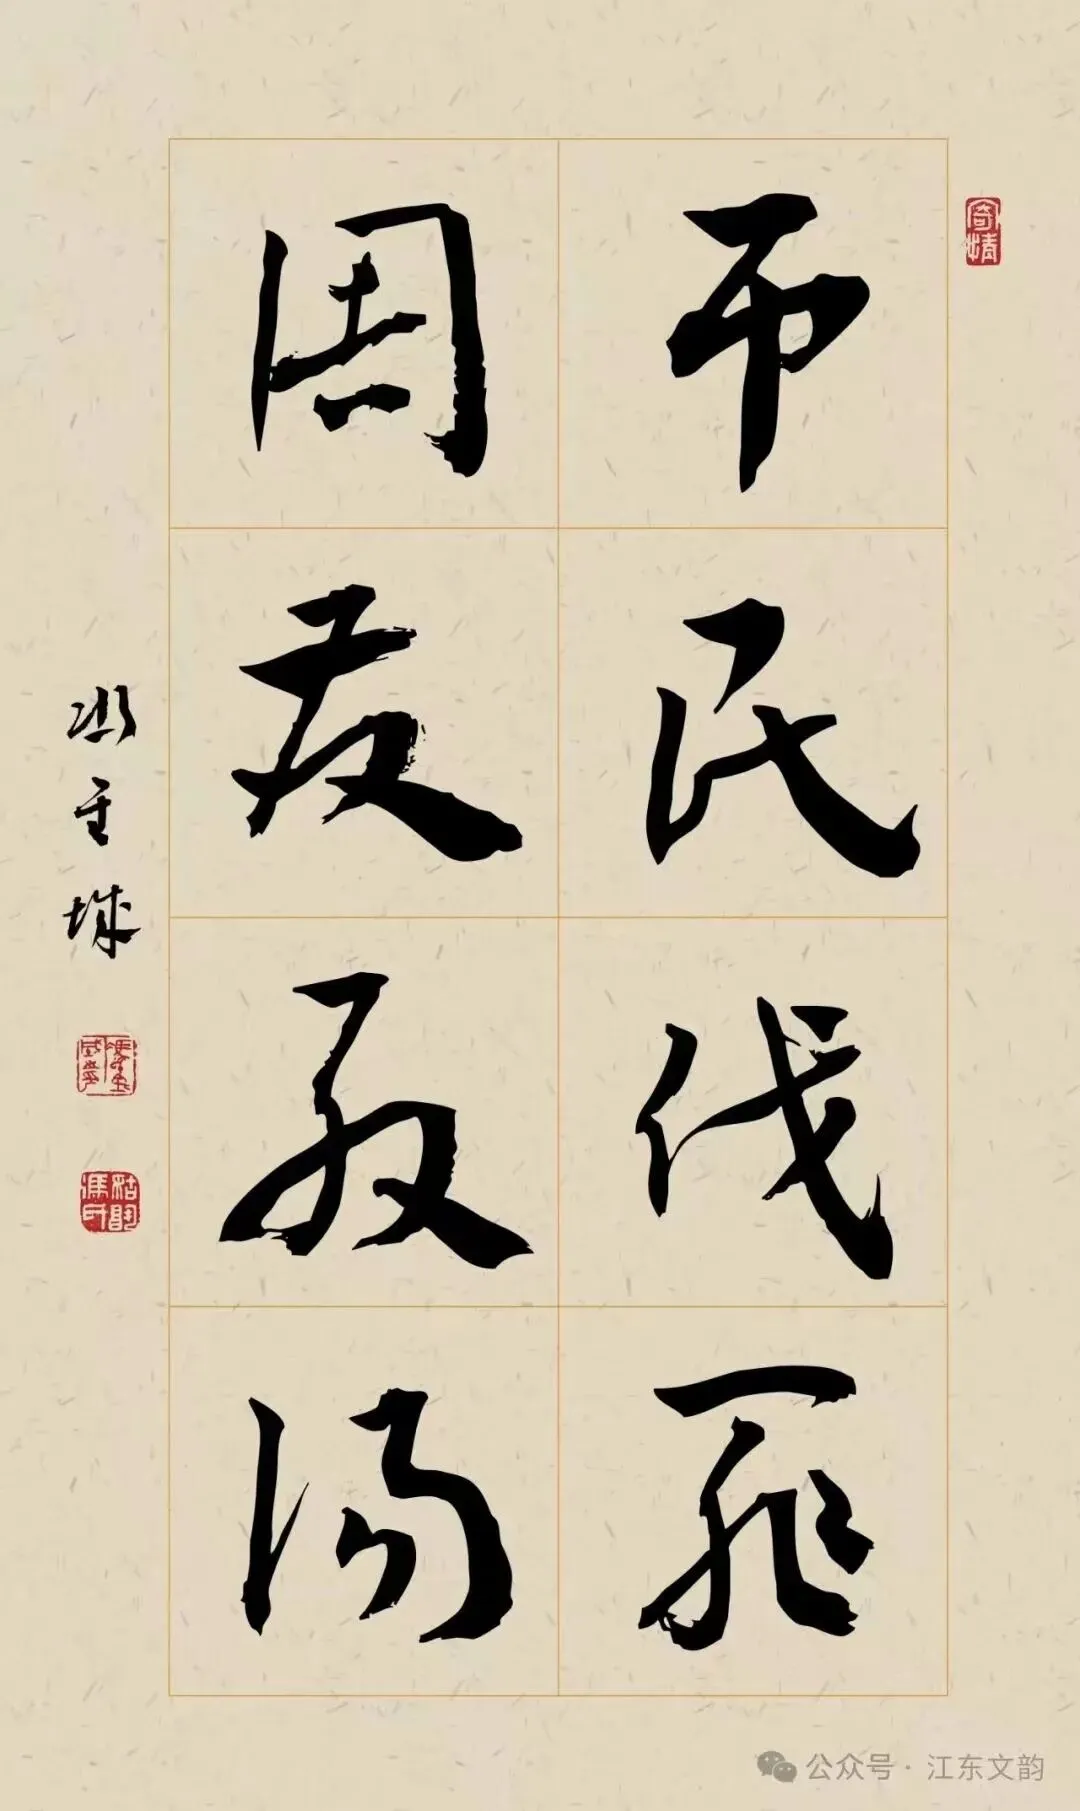 寄情
吊民伐罪
周发殷汤
公众号 · 江东文韵